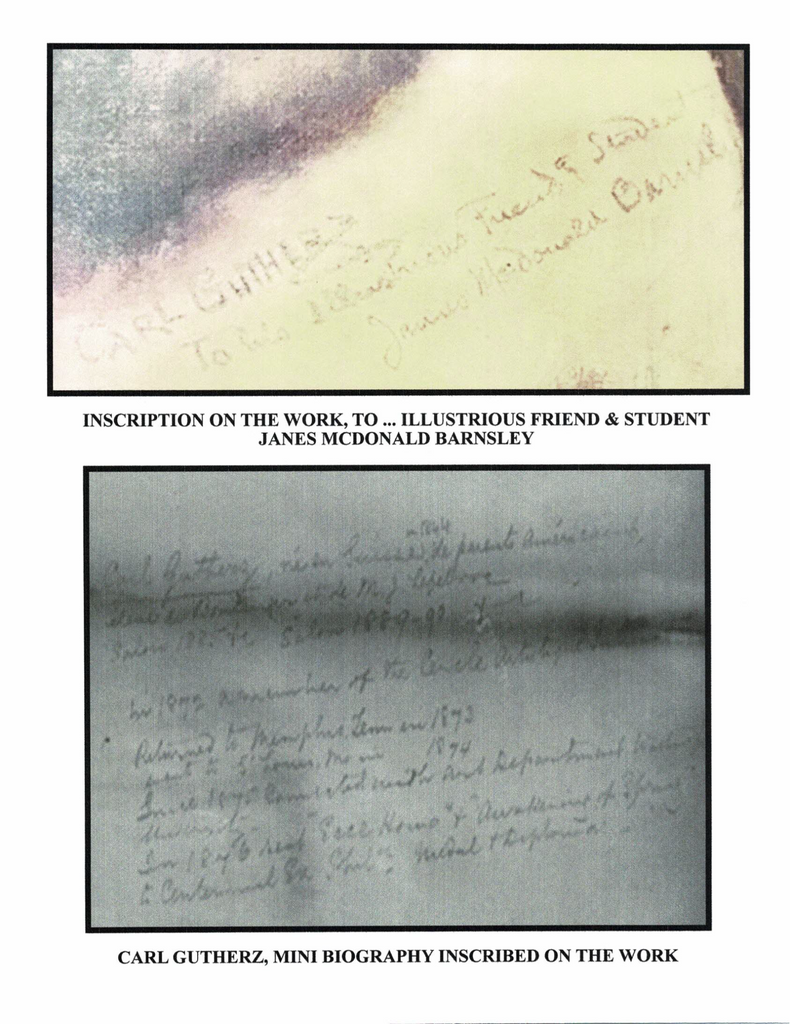 CARL GUTHERZ
To his Illustrious Friend & Student
James McDonald Barnsley
INSCRIPTION ON THE WORK, TO ... ILLUSTRIOUS FRIEND & STUDENT
JANES MCDONALD BARNSLEY
in 1844
Carl Gutherz, né en Suisse de parents Américains,
de M. J. Lefebvre
Salon 1885 Salon 1889-90
In 1872 a member of the Cercle Artistique
Returned to Memphis, Tenn in 1873
went to St Louis, Mo in 1874
Since 1875 Connected with Art Department
University
In 1876 sent "Ecce Homo" & "Awakening of Spring"
to Centennial Ex Phila Medal & Diploma
CARL GUTHERZ, MINI BIOGRAPHY INSCRIBED ON THE WORK